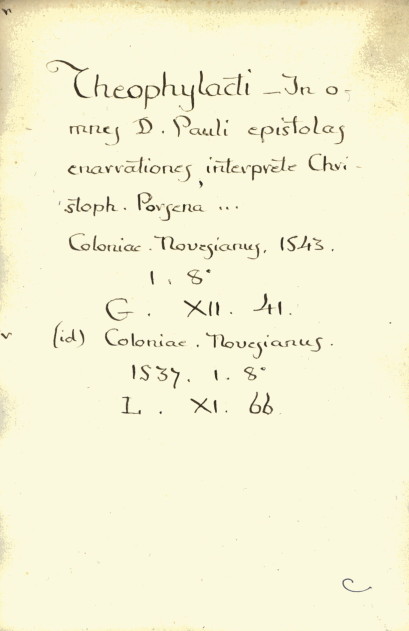 Theophylacti – In o-
mnes D. Pauli epistolas
enarrationes, interprete Chri-
stoph. Porsena ...
Coloniae. Novesianus, 1543.
1. 8°
G. XII. 41.
v (id) Coloniae. Novesianus.
1537. 1. 8°
L. XI. 66
C